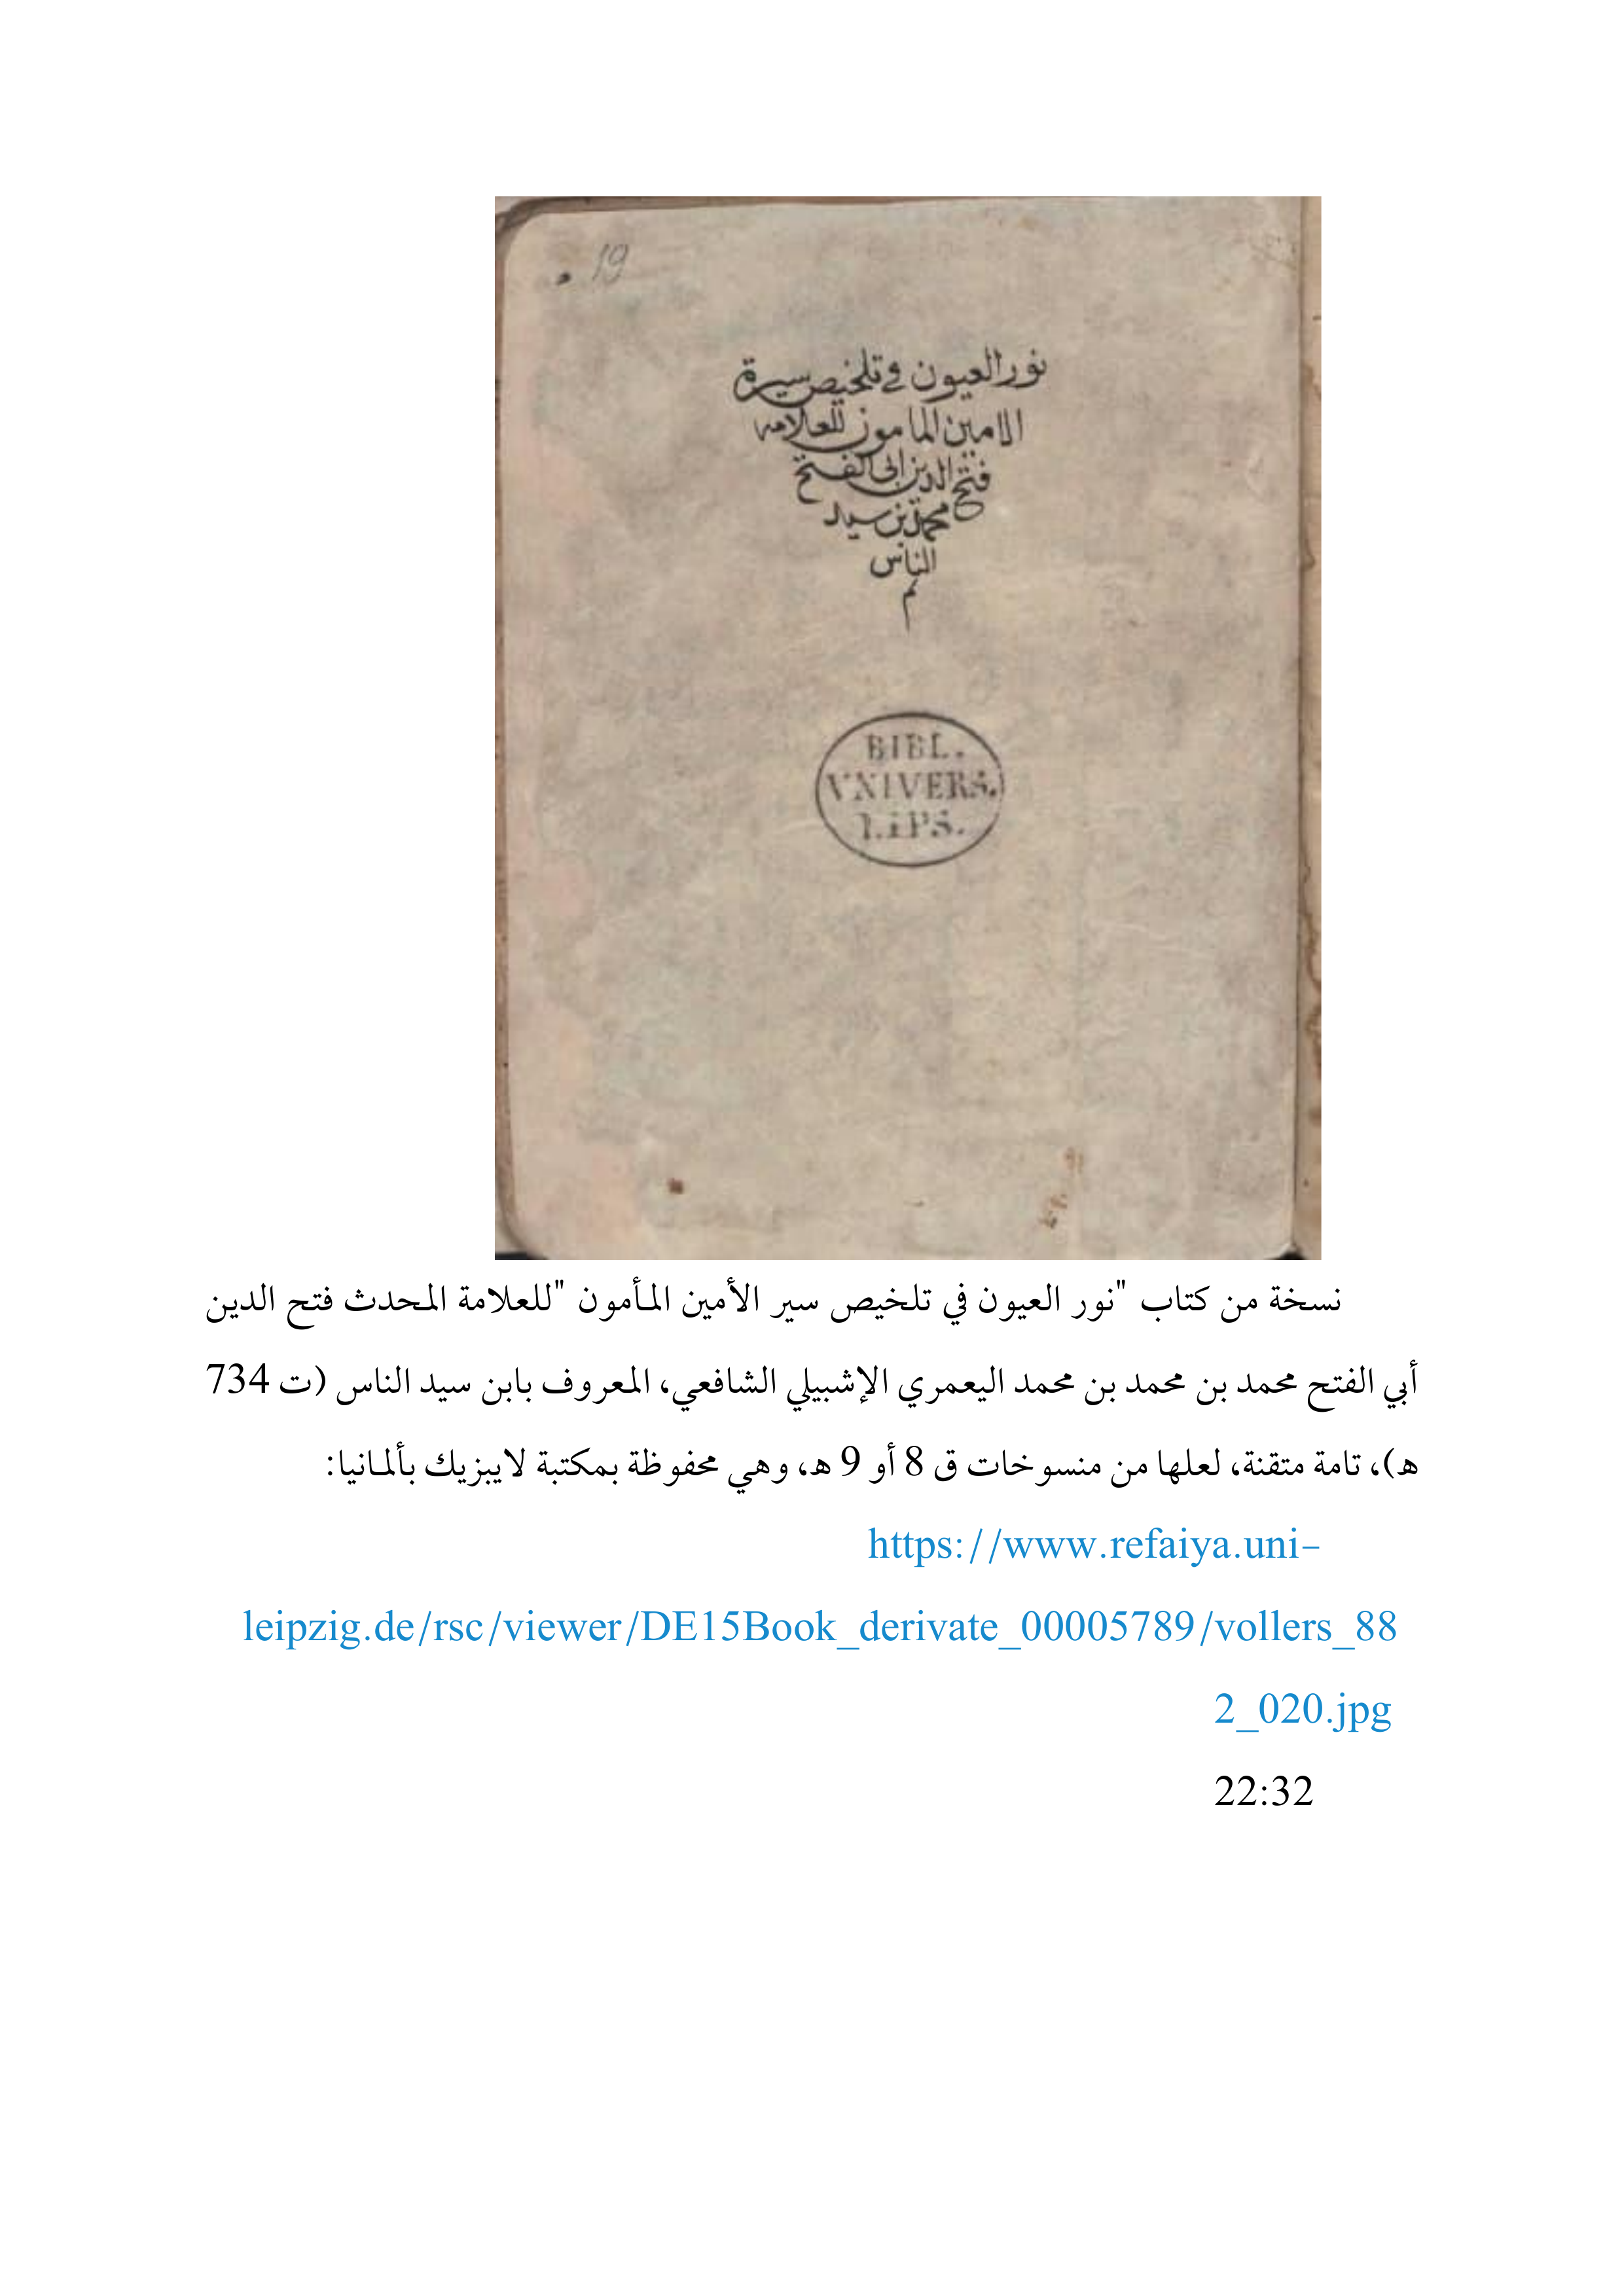 19.
نور العيون في تلخيص سيرة
الامين المامون للعلامه
فتح الدين ابى الفتح
محمد بن سيد
الناس
م
BIBL.
VNIVERS.
LIPS.
نسخة من كتاب "نور العيون في تلخيص سير الأمين المأمون "للعلامة المحدث فتح الدين
أبي الفتح محمد بن محمد بن محمد اليعمري الإشبيلي الشافعي، المعروف بابن سيد الناس (ت 734
هـ)، تامة متقنة، لعلها من منسوخات ق 8 أو 9 هـ، وهي محفوظة بمكتبة لايبزيك بألمانيا:
https://www.refaiya.uni-
leipzig.de/rsc/viewer/DE15Book_derivate_00005789/vollers_88
2_020.jpg
22:32